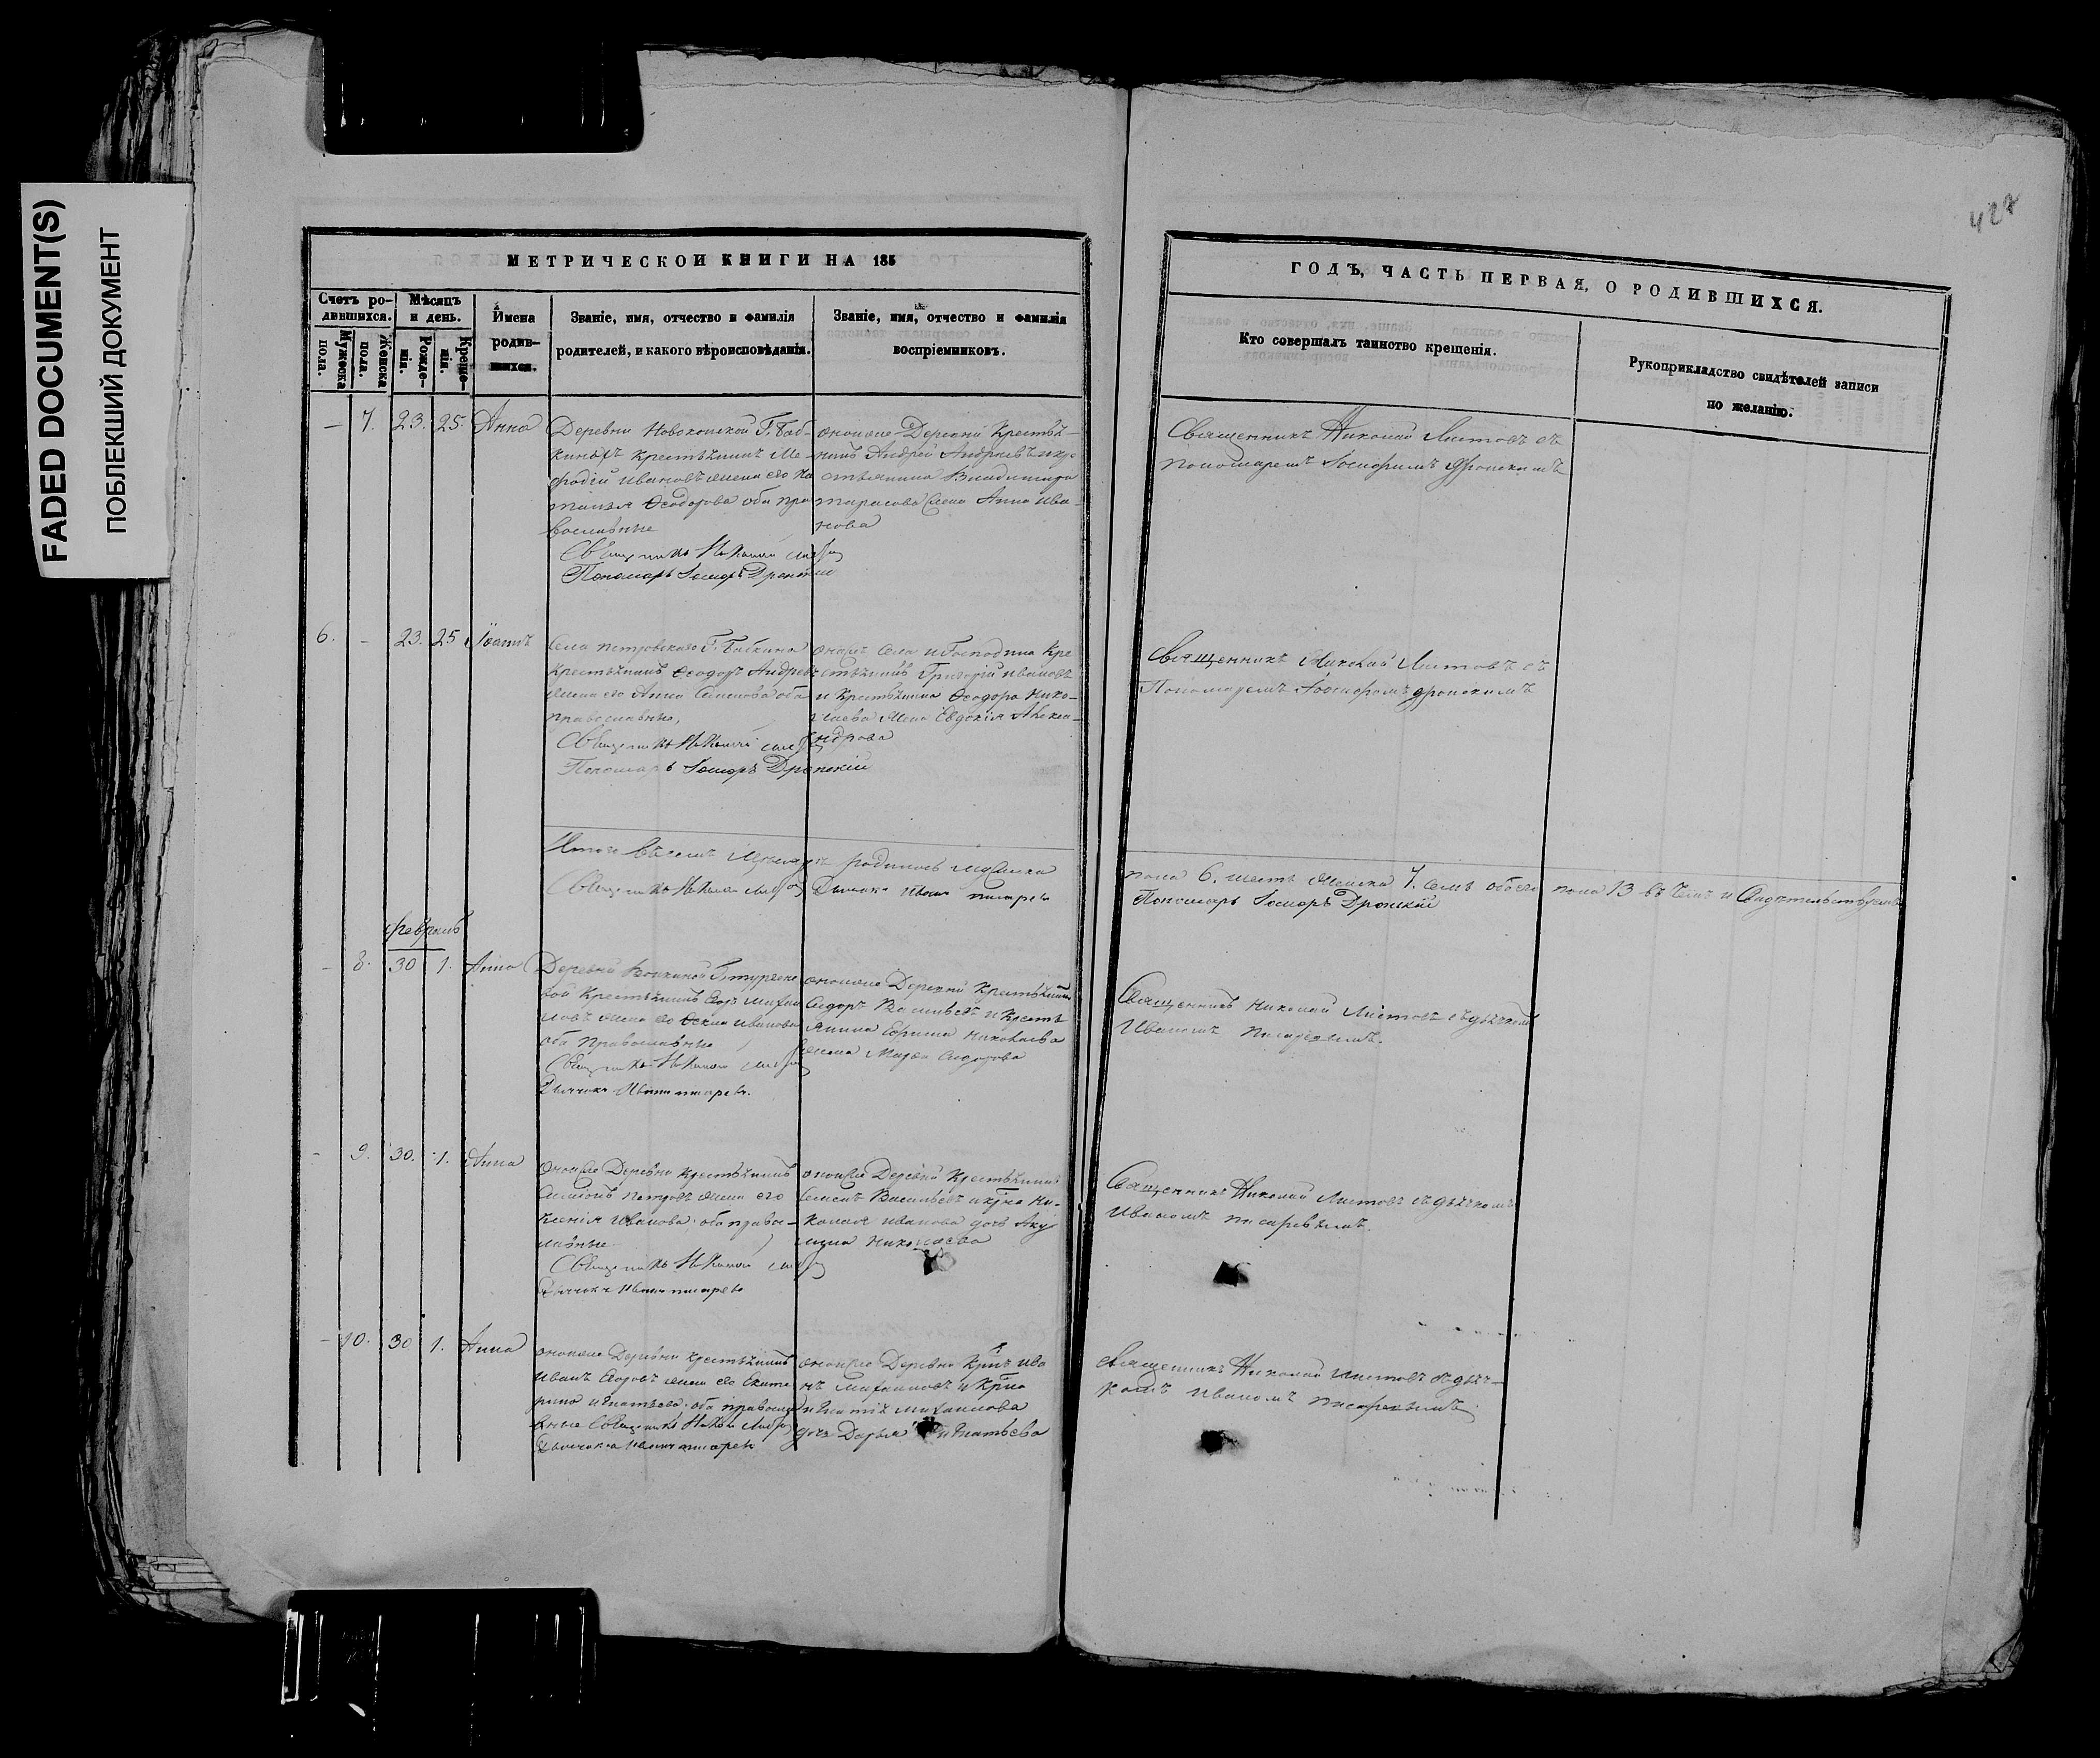 FADED DOCUMENT(S)
ПОБЛЕКШИЙ ДОКУМЕНТ
427
МЕТРИЧЕСКОЙ КНИГИ НА 185
Счетъ ро-
дившихся.
Мужеска
пола.
Женска
пола.
Мѣсяцъ
и день.
Рожде-
нія.
Креще-
нія.
Имена
родив-
шихся.
Званіе, имя, отчество и фамилія
родителей, и какого вѣроисповѣданія.
Званіе, имя, отчество и фамилія
воспріемниковъ.
ГОДЪ, ЧАСТЬ ПЕРВАЯ, О РОДИВШИХСЯ.
Кто совершалъ таинство крещенія.
Рукоприкладство свидѣтелей записи
по желанію.
— 7. 23. 25. Анна
Деревни Г. Баб-
крестьянинъ Ме-
фодій Ивановъ жена его На
талья Ѳеодорова оба пра
вославные
Священникъ Николай
Пономарь Дронскій
оной же Деревни Крестья-
нинъ Андрей Андреевъ и кре
стьянина Владимира
Тарасова жена Анна Ива
нова
Священникъ Николай Листовъ съ
пономаремъ Іосифомъ Дронскимъ
6. - 23. 25 Іоаннъ
Села Петровскаго Г. Бабкина
Крестьянинъ Ѳеодоръ Андреевъ
жена его Анна Семенова оба
православные,
Священникъ Николай
Пономарь Дронскій
онаго Села и Господина Кре
стьянинъ Григорій Ивановъ
и Крестьянина Ѳеодора Нико-
лаева жена Евдокія Алекса-
ндрова
Священникъ Николай Листовъ съ
Пономаремъ Іосифомъ Дронскимъ
Итого въ семъ родилось мужеска
пола 6. шесть женска 7. семь обоего пола 13
Священникъ Николай Дьячокъ Иванъ Писаревъ
Пономарь Дронскій
Февраль
- 8. 30 1. Анна
Деревни Г. Тургене
вой Крестьянинъ Егоръ Михаи
ловъ жена его Ѳекла Иванова
оба Православные
Священникъ Николай
Дьячокъ Иванъ Писаревъ.
оной же Деревни Крестьянинъ
Сидоръ Васильевъ и Кресть
янина Ефрема Николаева
жена Марѳа Сидорова
Священникъ Николай Листовъ съ дьячкомъ
Иваномъ Писаревымъ.
- 9. 30. 1. Анна
Оной же Деревни Крестьянинъ
Петровъ жена его
Ксенія Иванова оба правос-
лавные
Священникъ Николай
Дьячокъ Иванъ Писаревъ
оной же Деревни Крестьянинъ
Васильевъ и кр-на Ни-
колая Иванова дочь Аку
лина Николаева
Священникъ Николай Листовъ съ дьячкомъ
Иваномъ Писаревымъ.
- 10. 30 1. Анна
оной же Деревни Крестьянинъ
Иванъ Егоровъ жена его Екате
рина Игнатьева оба правосла
вные Священникъ Николай
Дьячокъ Иванъ Писаревъ
оной же Деревни Кр-нъ Ива
нъ Михаиловъ и Кр-на
Игнатія Михаилова
дочь Дарья Игнатьева
Священникъ Николай Листовъ съ дьяч-
комъ Иваномъ Писаревымъ.